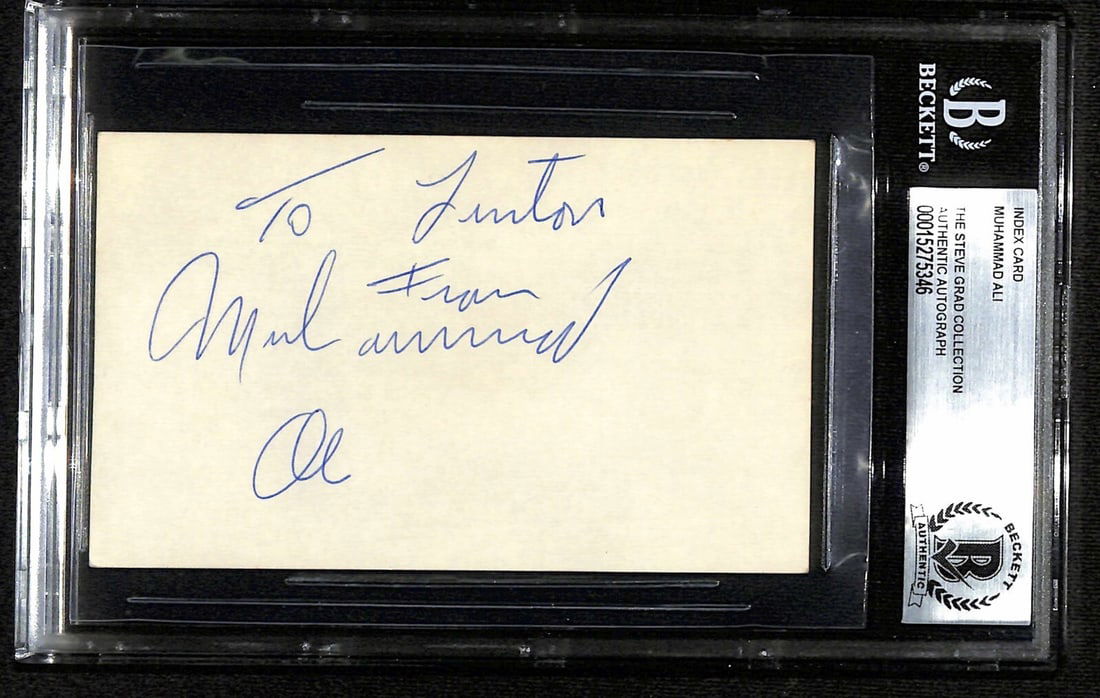 To Linton
From
Muhammad
Ali
BECKETT®
B
INDEX CARD
MUHAMMAD ALI
THE STEVE GRAD COLLECTION
AUTHENTIC AUTOGRAPH
00015275346
BECKETT
B
AUTHENTIC